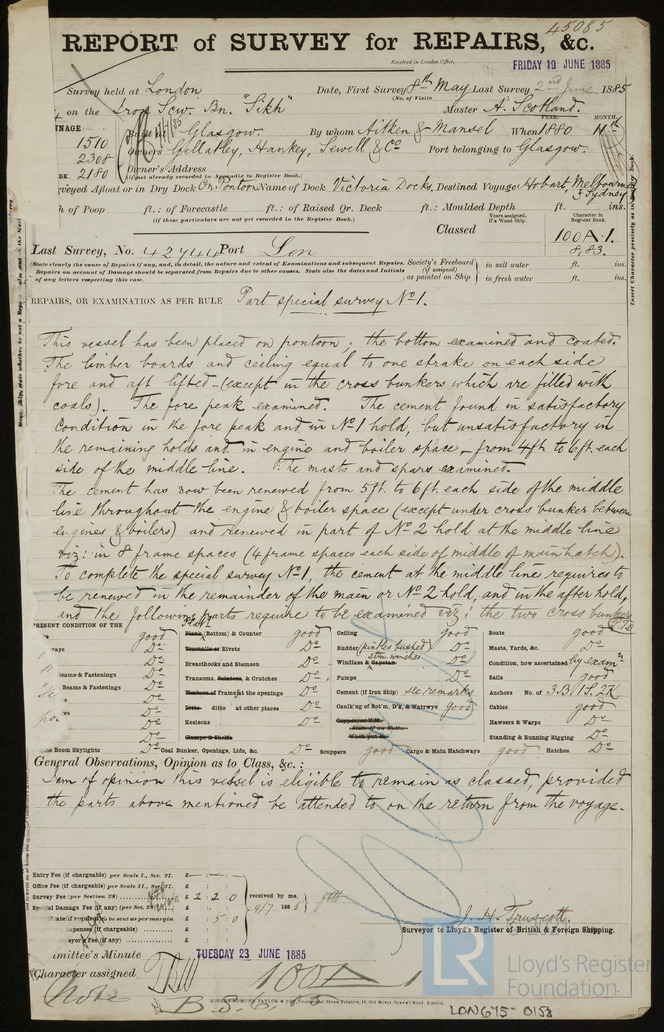 45085
REPORT of SURVEY for REPAIRS, &c.
Received in London Office,
FRIDAY 19 JUNE 1885
Survey held at London Date, First Survey 8th May Last Survey 2nd June 1885
(No. of Visits
on the Iron Scw. Bn. "Sikh" Master A. Scotland.
NAGE: YEAR. MONTH.
1510 Glasgow. By whom Aitken & Mansel When 1880 11
2308 Owners Gellatley, Hankey, Sewell & Co Port belonging to Glasgow.
DK. 2180 Owner's Address
(if not already recorded in Appendix to Register Book.)
veyed Afloat or in Dry Dock On Pontoon Name of Dock Victoria Docks. Destined Voyage Hobart, Melbourne & Sydney
h of Poop ft.: of Forecastle ft.: of Raised Qr. Deck ft.: Moulded Depth ft. ins.
(if these particulars are not yet recorded in the Register Book.)
Years assigned, if a Wood Ship. Character in Register Book.
Classed 100A.1.
8,83.
Last Survey, No. 42744 Port Lon
(State clearly the cause of Repairs if any, and, in detail, the nature and extent of Examinations and subsequent Repairs.
Repairs on account of Damage should be separated from Repairs due to other causes. State also the dates and Initials
of any letters respecting this case.
Society's Freeboard (if assigned) as painted on Ship
in salt water ft. ins.
in fresh water ft. ins.
REPAIRS, OR EXAMINATION AS PER RULE Part special survey No 1.
This vessel has been placed on pontoon; the bottom examined and coated.
The limber boards and ceiling equal to one strake on each side
fore and aft lifted (except in the cross bunkers which are filled with
coals). The fore peak examined. The cement found in satisfactory
condition in the fore peak and in No 1 hold, but unsatisfactory in
the remaining holds and in engine and boiler space - from 4ft to 6ft each
side of the middle line. The masts and spars examined.
The cement has now been renewed from 5ft to 6ft each side of the middle
line throughout the engine & boiler space (except under cross bunker between
engines & boilers) and renewed in part of No 2 hold at the middle line
viz: in 8 frame spaces (4 frame spaces each side of middle of main hatch).
To complete the special survey No 1, the cement at the middle line requires to
be renewed in the remainder of the main or No 2 hold, and in the after hold,
and the following parts require to be examined viz: the two cross bunkers
PRESENT CONDITION OF THE
good Plank (Bottom) & Counter good Ceiling good Boats good
ways Do Treenails or Rivets Do Rudder (pintles bushed) Do Masts, Yards, &c. Do
Breasthooks and Stemson Do Windlass & Capstan Do Condition, how ascertained by exam
Beams & Fastenings Do Transoms, Pointers, & Crutches Do Pumps Do Sails good
Beams & Fastenings Do Timbers of Frames at the openings Do Cement (if Iron Ship) see remarks Anchors No. of 3.B
Do Ditto ditto at other places Do Caulk'ng of Bot'm, D'k, & Watrw'ys good Cables good
Do Keelsons Do Copper, or Y.M. Hawsers & Warps Do
Do Clamps & Shelfs Standing & Running Rigging Do
Room Skylights Do Coal Bunker, Openings, Lids, &c. Do Scuppers good Cargo & Main Hatchways good Hatches Do
General Observations, Opinion as to Class, &c.:
I am of opinion this vessel is eligible to remain as classed, provided
the parts above mentioned be attended to on the return from the voyage.
Entry Fee (if chargeable) per Scale I., Sec. 27. £
Office Fee (if chargeable) per Scale II., Sec. 27. £
Survey Fee (per Section 28) £ 2 2 0 received by me,
Special Damage Fee (if any) (per Sec. 28) £
to be sent as per margin 5 0
penses (if chargeable) £
Fee (if any) £
J. H. Truscott
Surveyor to Lloyd's Register of British & Foreign Shipping.
mittee's Minute TUESDAY 23 JUNE 1885
Character assigned 100A1
Note B.S.
LR Lloyd's Register Foundation
LON 675-0158